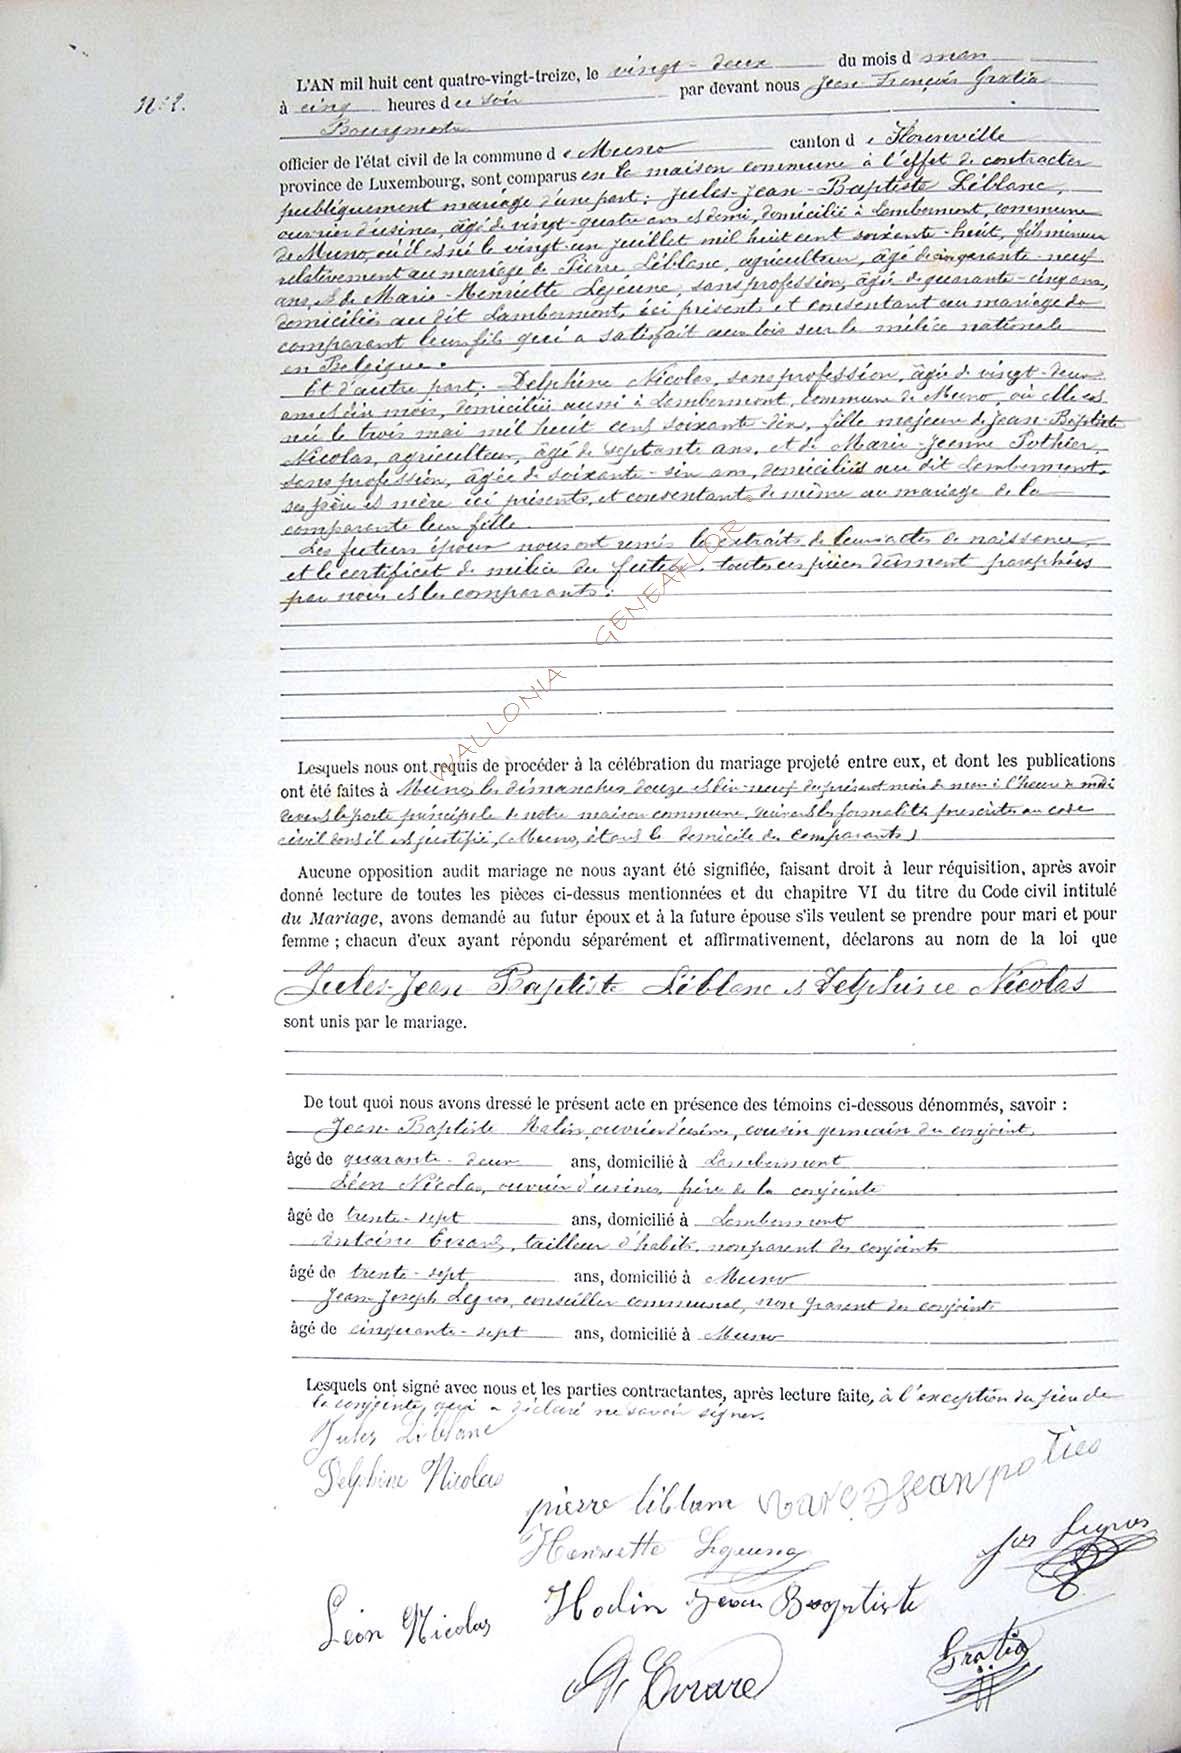 N° 2.
L'AN mil huit cent quatre-vingt-treize, le vingt-deux du mois d mars
à cinq heures d u soir par devant nous Jean François Gratia
Bourgmestre
officier de l'état civil de la commune d e Muno canton d e Florenville
province de Luxembourg, sont comparus en la maison commune à l'effet de contracter
publiquement mariage d'une part: Jules-Jean-Baptiste Liblanc,
ouvrier d'usines, âgé de vingt-quatre ans et demi, domicilié à Lambermont, commune
de Muno, où il est né le vingt-un juillet mil huit cent soixante-huit, fils mineur
relativement au mariage de Pierre Liblanc, agriculteur, âgé de cinquante-neuf
ans, et de Marie-Henriette Lejeune, sans profession, âgée de quarante-cinq ans,
domiciliés au dit Lambermont, ici présents et consentant au mariage du
comparant leur fils qui a satisfait aux lois sur la milice nationale
en Belgique.
Et d'autre part: Delphine Nicolas, sans profession, âgée de vingt-deux
ans et dix mois, domiciliée aussi à Lambermont, commune de Muno, où elle est
née le trois mai mil huit cent soixante-dix, fille majeure de Jean-Baptiste
Nicolas, agriculteur, âgé de septante ans, et de Marie-Jeanne Pothier,
sans profession, âgée de soixante-six ans, domiciliés au dit Lambermont,
ses père et mère ici présents, et consentant de même au mariage de la
comparante leur fille.
Les futurs époux nous ont remis les extraits de leurs actes de naissance
et le certificat de milice du futur, toutes ces pièces dûment paraphées
par nous et les comparants.
Lesquels nous ont requis de procéder à la célébration du mariage projeté entre eux, et dont les publications
ont été faites à Muno, les dimanches douze et dix-neuf du présent mois de mars à l'heure de midi
devant la porte principale de notre maison commune, suivant les formalités prescrites au code
civil dont il est justifié, (Muno, étant le domicile des comparants)
Aucune opposition audit mariage ne nous ayant été signifiée, faisant droit à leur réquisition, après avoir
donné lecture de toutes les pièces ci-dessus mentionnées et du chapitre VI du titre du Code civil intitulé
du Mariage, avons demandé au futur époux et à la future épouse s'ils veulent se prendre pour mari et pour
femme ; chacun d'eux ayant répondu séparément et affirmativement, déclarons au nom de la loi que
Jules-Jean-Baptiste Liblanc et Delphine Nicolas
sont unis par le mariage.
De tout quoi nous avons dressé le présent acte en présence des témoins ci-dessous dénommés, savoir :
Jean-Baptiste Halin, ouvrier d'usines, cousin germain du conjoint,
âgé de quarante-deux ans, domicilié à Lambermont
Léon Nicolas, ouvrier d'usines, frère de la conjointe
âgé de trente-sept ans, domicilié à Lambermont
Antoine Evrard, tailleur d'habits, non parent des conjoints
âgé de trente-sept ans, domicilié à Muno
Jean-Joseph Legros, conseiller communal, non parent des conjoints
âgé de cinquante-sept ans, domicilié à Muno
Lesquels ont signé avec nous et les parties contractantes, après lecture faite, à l'exception du père de
la conjointe, qui a déclaré ne savoir signer.
Jules Liblanc
Delphine Nicolas
pierre liblanc
Henriette Lejeune
Jos Legros
Léon Nicolas
Jean Baptiste
Evrard
Gratia
WALLONIA GENEAFLOR